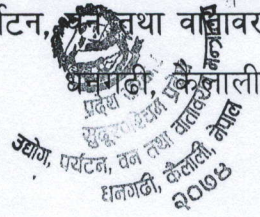 र्यटन, वन तथा वातावर
धनगढी, कैलाली
प्रदेश
सुदूरपश्चिम प्रदेश
उद्योग, पर्यटन, वन तथा वातावरण मन्त्रालय
धनगढी, कैलाली, नेपाल
२०७४